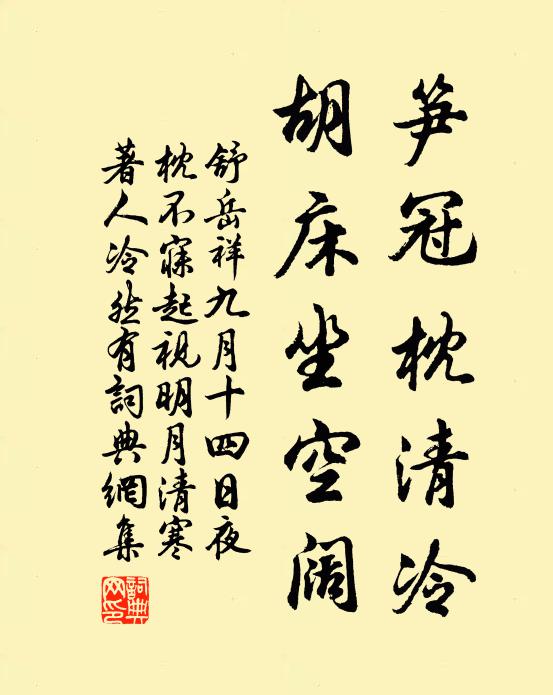 笋冠枕清冷
胡床坐空阔
舒岳祥九月十四日夜
枕不寐起视明月清寒
著人冷然有詞典網集
詞典网印